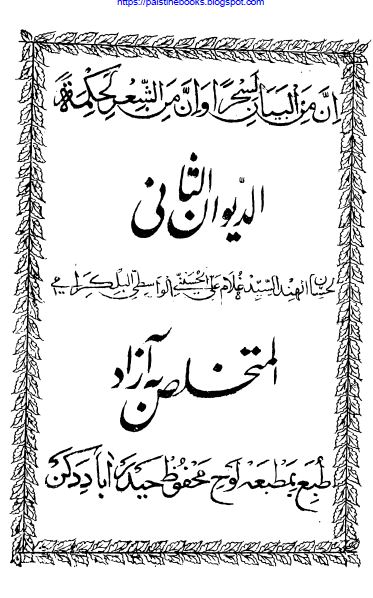 https://palstinebooks.blogspot.com
إنّ من البيان لسحرًا وإنّ من الشعر لحكمة
الديوان الثاني
لحسان الهند السيد غلام علي الحسيني الواسطي البلكرامي
المتخلص به آزاد
طبع بمطبعه لوح محفوظ حيدرآباد دكن